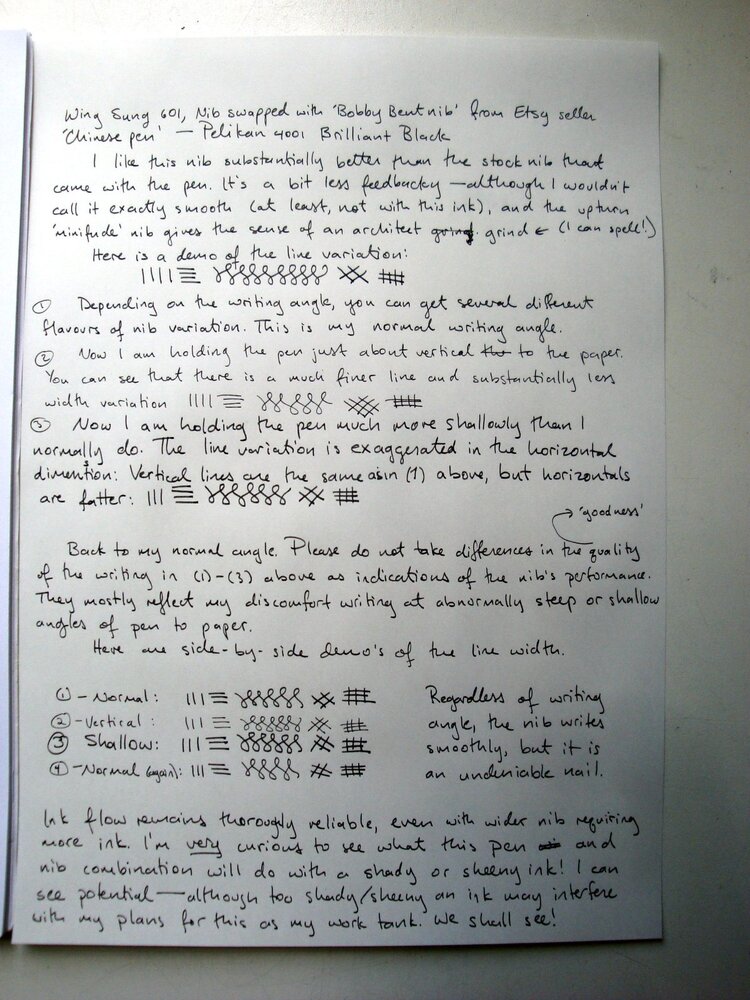 Wing Sung 601, Nib swapped with 'Bobby Bent nib' from Etsy seller
'Chinese pen' — Pelikan 4001 Brilliant Black
I like this nib substantially better than the stock nib that
came with the pen. It's a bit less feedbacky — although I wouldn't
call it exactly smooth (at least, not with this ink), and the upturn
'minifude' nib gives the sense of an architect grind ← (I can spell!)
Here is a demo of the line variation:
① Depending on the writing angle, you can get several different
flavours of nib variation. This is my normal writing angle.
② Now I am holding the pen just about vertical to the paper.
You can see that there is a much finer line and substantially less
width variation
③ Now I am holding the pen much more shallowly than I
normally do. The line variation is exaggerated in the horizontal
dimention: Vertical lines are the same as in (1) above, but horizontals
are fatter:
→ 'goodness'
Back to my normal angle. Please do not take differences in the quality
of the writing in (1)-(3) above as indications of the nib's performance.
They mostly reflect my discomfort writing at abnormally steep or shallow
angles of pen to paper.
Here are side-by-side demo's of the line width.
① - Normal:
② - Vertical:
③ Shallow:
④ - Normal (again):
Regardless of writing
angle, the nib writes
smoothly, but it is
an undeniable nail.
Ink flow remains thoroughly reliable, even with wider nib requiring
more ink. I'm very curious to see what this pen and
nib combination will do with a shady or sheeny ink! I can
see potential — although too shady/sheeny an ink may interfere
with my plans for this as my work tank. We shall see!